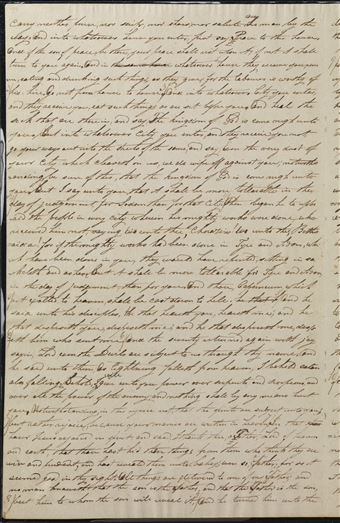 Carry neither purse, nor scrip, nor shoes, nor salute any man by the
way, And in whatsoever house you enter, first say Peace to this house
And if the son of peace be there your peace shall rest upon it, if not it shall
turn to you again, And in whatsoever house they receive you
eating and drinking such things as they give, for the laborer is worthy of
his hire, Go not from house to house, And into whatsoever City you enter,
and they receive you, eat such things as are set before you, And heal the
sick that are therein, and say the kingdom of God is come nigh unto
you, But into whatsoever City you enter, and they receive you not
go your ways out into the streets of the same, and say, even the very dust of
your City which cleaveth on us, we do wipe off against you, notwithstanding
be sure of this, that the kingdom of God is come nigh unto
you, But I say unto you, that it shall be more tollerable in the
day of judgement for Sodom than for that City, Then began he to upbraid
the people in every city wherein his mighty works were done, who
received him not, saying, wo unto thee, Chorazin! wo unto thee, Bethsaida!
for if the mighty works had been done in Tyre and Sidon, which
have been done in you, they would have repented, sitting in sackcloth
and ashes, But it shall be more tollerable for Tyre and Sidon
in the day of judgement, than for you, And thou, Capernaum, which
art exalted to heaven, shall be cast down to hell, And he
said unto his disciples, He that heareth you, heareth me; and he
that despiseth you, despiseth me; and he that despiseth me, despiseth
him who sent me, And the seventy returned again with joy
saying, Lord even the devils are subject to us through thy name, And
he said unto them, As lightning falleth from heaven, I beheld satan
also falling, Behold, I give unto you power over serpents and scorpions, and
over all the power of the enemy; and nothing shall by any means hurt
you, Notwithstanding in this rejoice not, that the spirits are subject unto you;
but rather rejoice, because your names are written in heaven, In that
hour Jesus rejoiced in spirit and said, I thank thee, O Father, Lord of heaven
and earth, that thou hast hid these things from them who think they are
wise and prudent, and hast revealed them unto babes; even so, Father, for so it
seemed good in thy sight, All things are delivered to me of my Father; and
no man knoweth that the son is the Father, and the Father is the son,
but him to whom the son will reveal it, And he turned him unto the